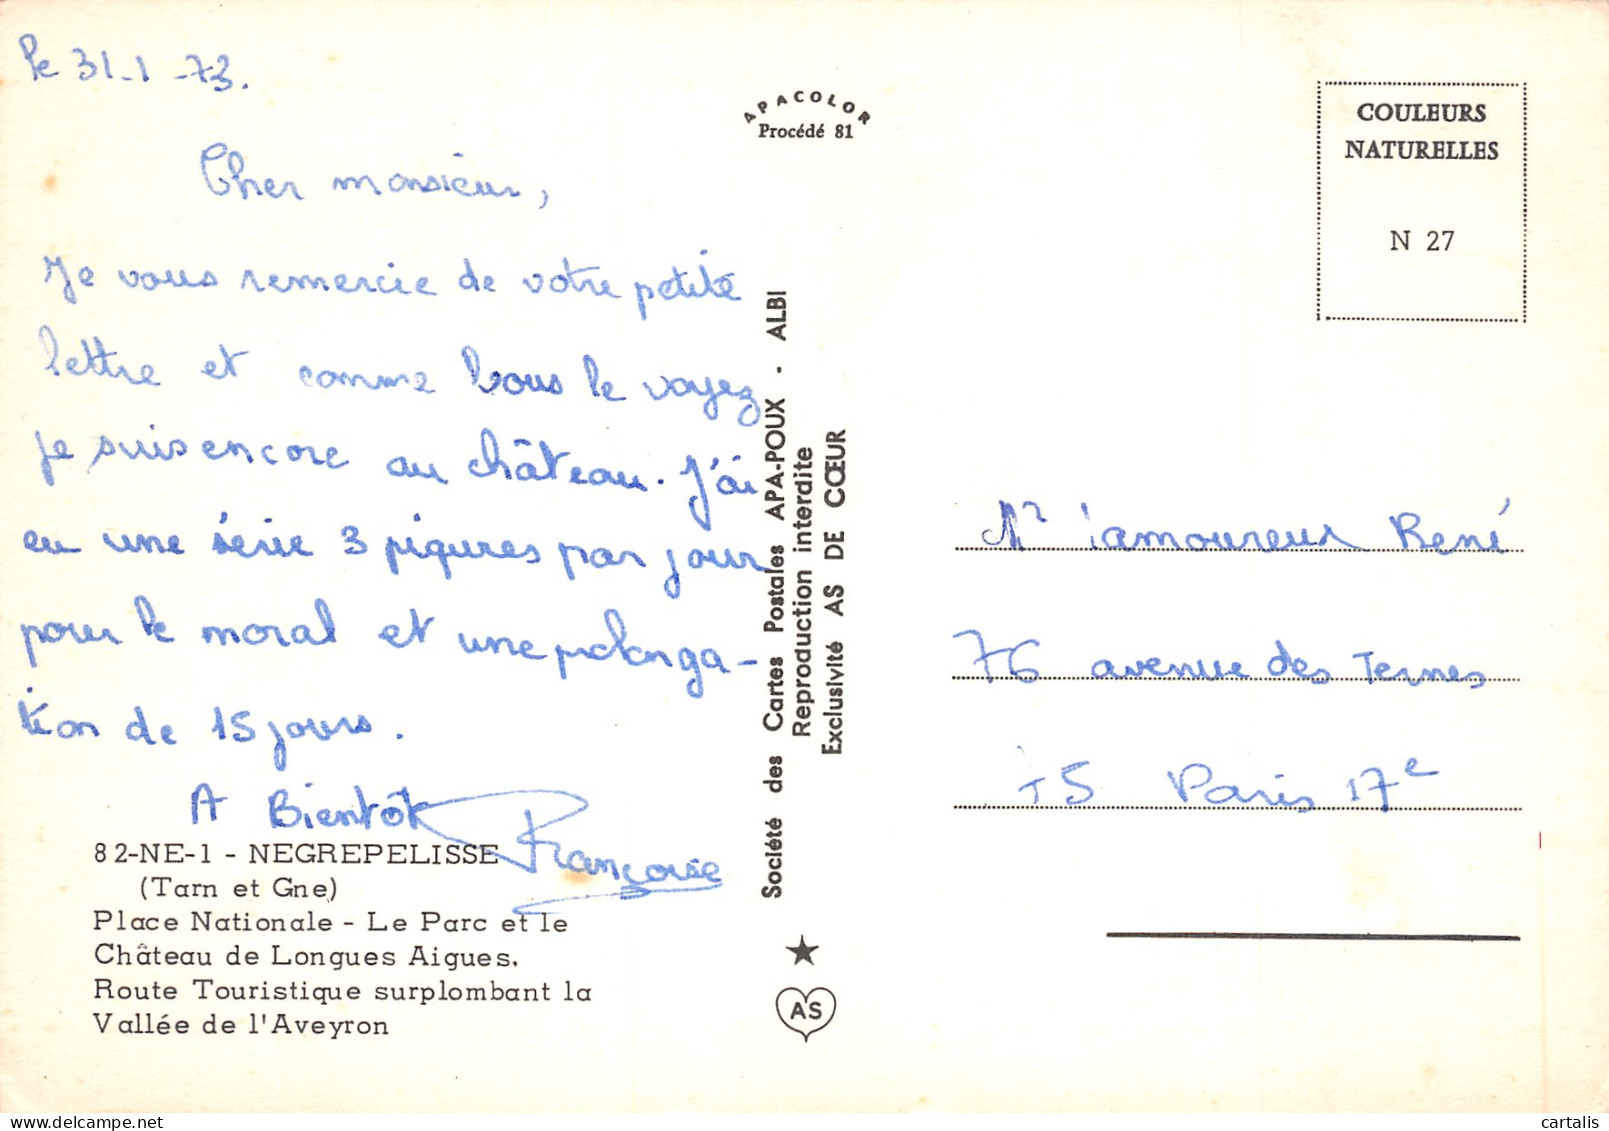 le 31-1-73.
Cher monsieur,
Je vous remercie de votre petite
lettre et comme vous le voyez
je suis encore au château. J'ai
eu une série 3 piqures par jour
pour le moral et une prolonga-
tion de 15 jours.
A Bientôt
Françoise
82-NE-1 - NEGREPELISSE
(Tarn et Gne)
Place Nationale - Le Parc et le
Château de Longues Aigues.
Route Touristique surplombant la
Vallée de l'Aveyron
APACOLOR
Procédé 81
Société des Cartes Postales APA-POUX - ALBI
Reproduction interdite
Exclusivité AS DE CŒUR
AS
COULEURS
NATURELLES
N 27
Mr Lamoureux René
76 avenue des Ternes
75 Paris 17e
cartalis